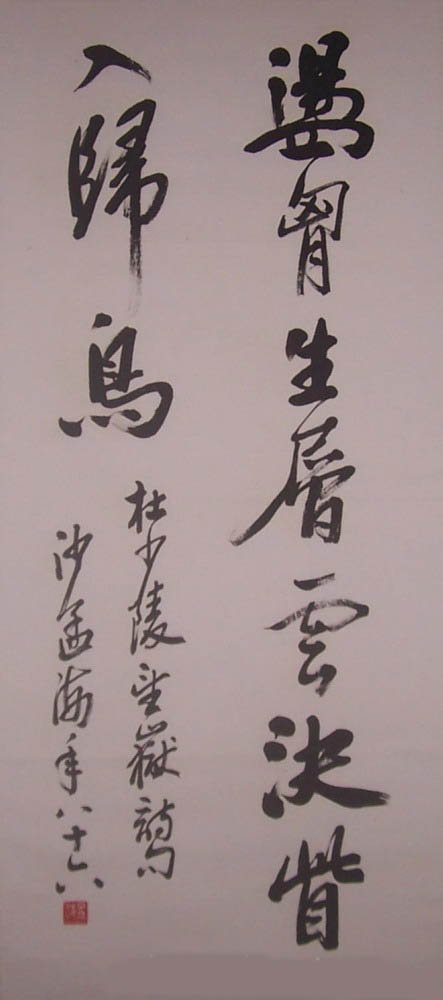 盪胷生層雲決眥
入歸鳥
杜少陵望嶽詩句
沙孟海年八十六